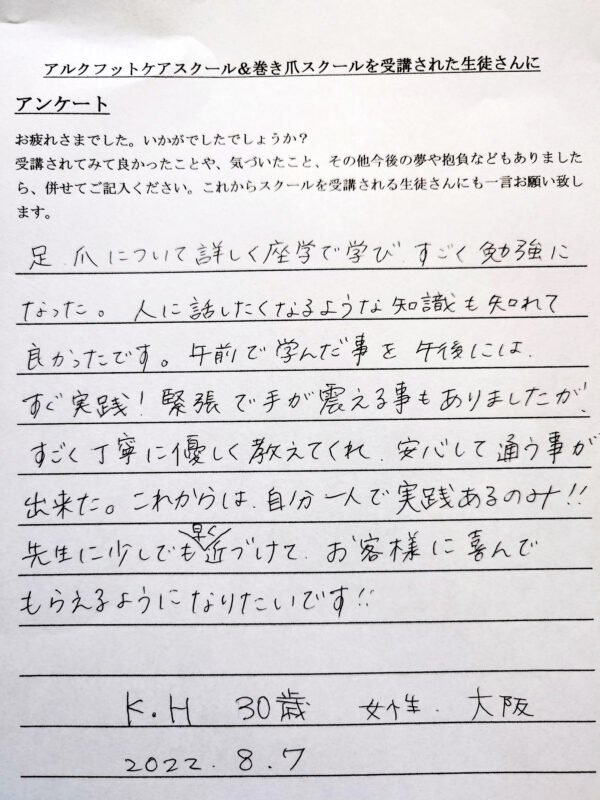 アルクフットケアスクール&巻き爪スクールを受講された生徒さんに
アンケート
お疲れさまでした。いかがでしたでしょうか？
受講されてみて良かったことや、気づいたこと、その他今後の夢や抱負などもありました
ら、併せてご記入ください。これからスクールを受講される生徒さんにも一言お願い致し
ます。
足、爪について詳しく座学で学び、すごく勉強に
なった。人に話したくなるような知識も知れて
良かったです。午前で学んだ事を午後には、
すぐ実践！緊張で手が震える事もありましたが、
すごく丁寧に優しく教えてくれ、安心して通う事が
出来た。これからは、自分一人で実践あるのみ!!
先生に少しでも早く近づけて、お客様に喜んで
もらえるようになりたいです!!
K.H 30歳 女性. 大阪
2022.8.7